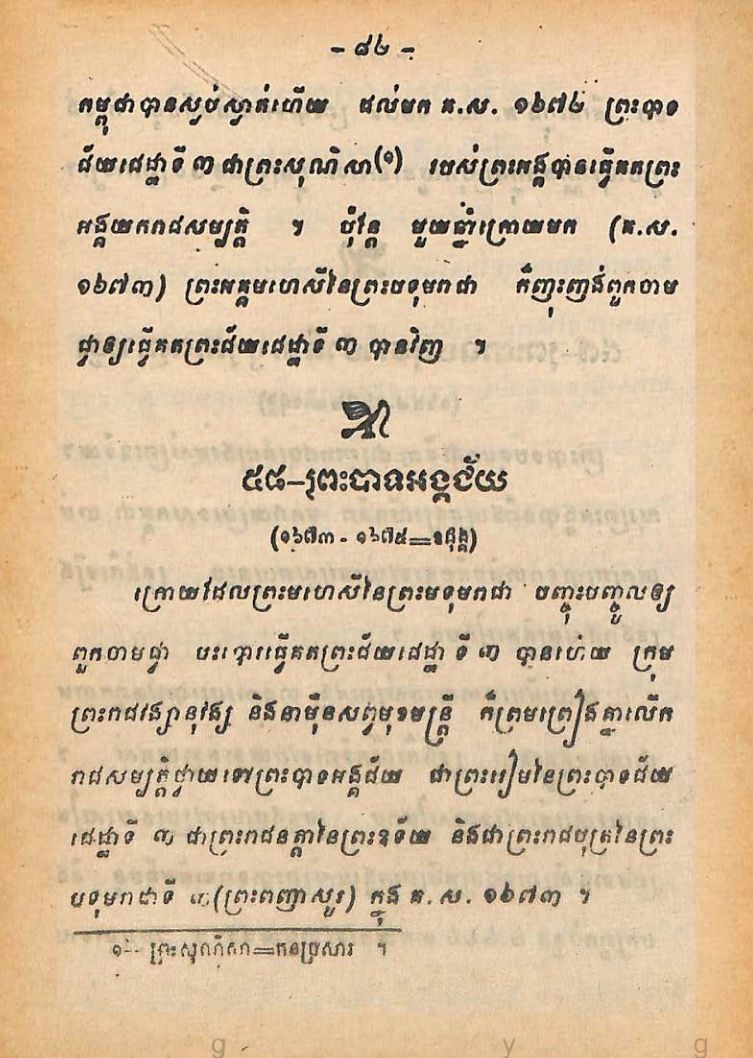 - ៨២ -
កម្ពុជាបានស្ងប់ស្ងាត់ហើយ ដល់មក គ.ស. ១៦៧២ ព្រះបាទ
ជ័យជេដ្ឋាទី ៣ ជាព្រះសុណិសា(១) របស់ព្រះអង្គបានធ្វើគតព្រះ
អង្គយករាជសម្បត្តិ ។ ប៉ុន្តែ មួយឆ្នាំក្រោយមក (គ.ស.
១៦៧៣) ព្រះអគ្គមហេសីនៃព្រះបទុមរាជា ក៏ញុះញង់ពួកចាម
ជ្វាឲ្យធ្វើគតព្រះជ័យជេដ្ឋាទី ៣ បានវិញ ។
៥៨-ព្រះបាទអង្គជ័យ
(១៦៧៣ - ១៦៧៥=ឧដុង្គ)
ក្រោយដែលព្រះមហេសីនៃព្រះមទុមរាជា បញ្ចុះបញ្ចូលឲ្យ
ពួកចាមជ្វា បះបោរធ្វើគតព្រះជ័យជេដ្ឋា ទី ៣ បានហើយ ក្រុម
ព្រះរាជវង្សានុវង្ស និងនាម៉ឺនសព្វមុខមន្ត្រី ក៏ព្រមព្រៀងគ្នាលើក
រាជសម្បត្តិថ្វាយទៅព្រះបាទអង្គជ័យ ជាព្រះរៀមនៃព្រះបាទជ័យ
ជេដ្ឋាទី ៣ ជាព្រះរាជនត្តានៃព្រះឧទ័យ និងជាព្រះរាជបុត្រនៃព្រះ
បទុមរាជាទី ៣(ព្រះពញាសួរ) ក្នុង គ. ស. ១៦៧៣ ។
១-- ព្រះសុណិសា=កូនប្រសារ ។
g y g